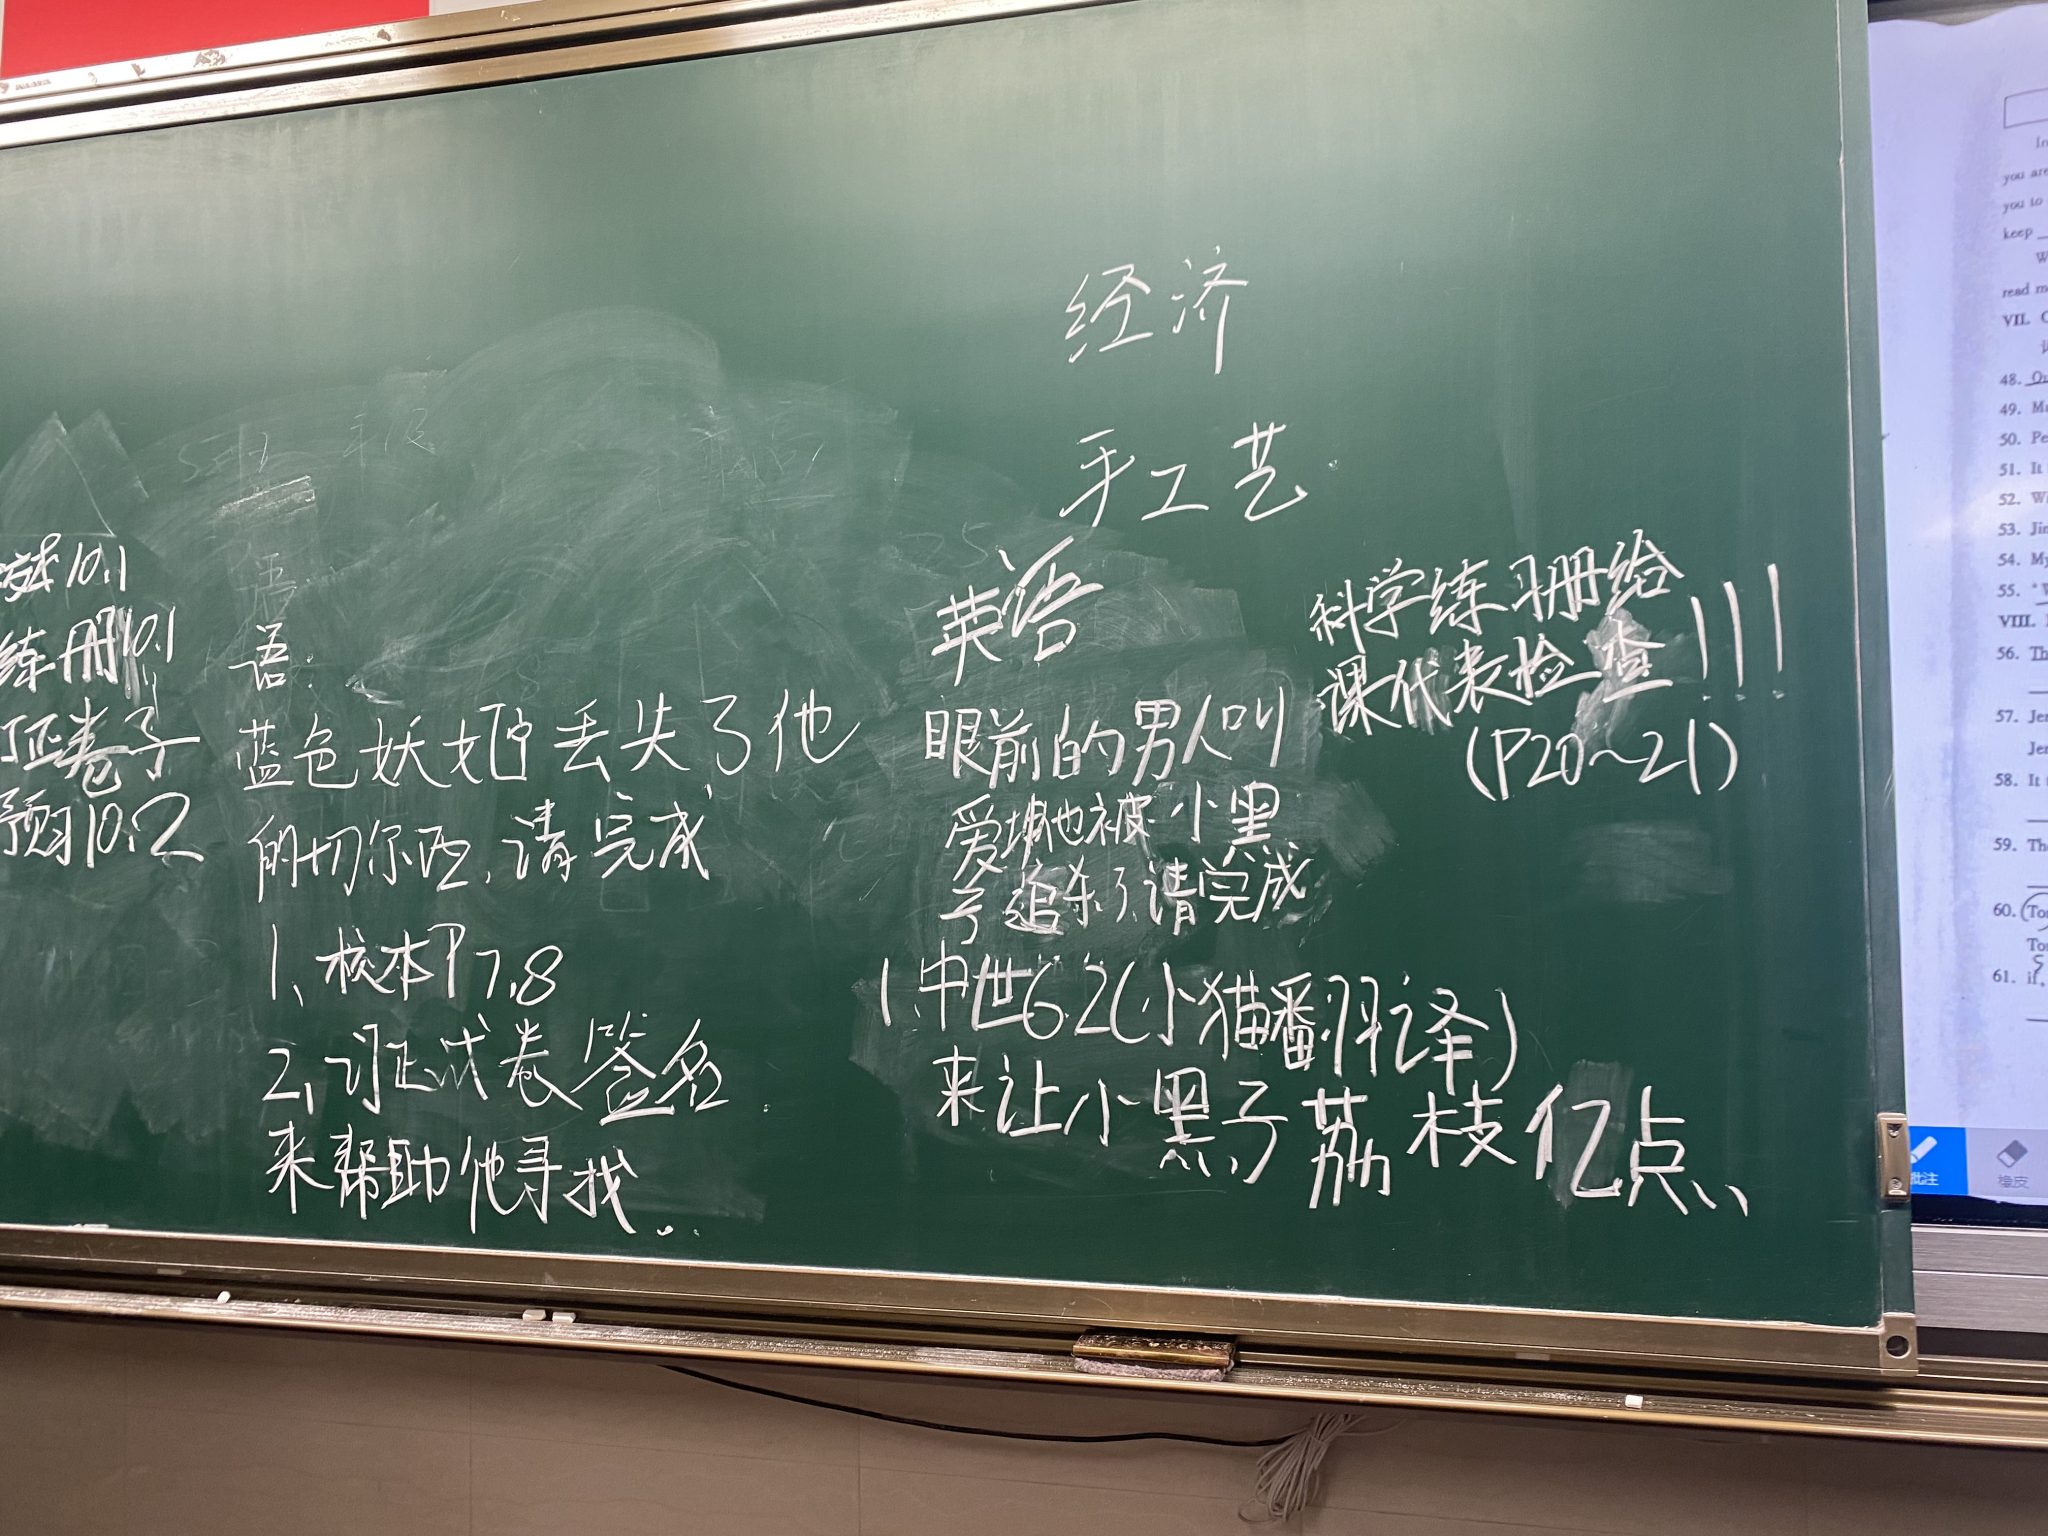 经济
手工艺
10.1
练册10.1
订正卷子
预习10.2
语:
蓝色妖姬丢失了他
的切尔西,请完成
1、校本P7,8
2、订正试卷签名
来帮助他寻找...
英语
眼前的男人叫
爱坤他被小黑
子追杀了请完成
1.中世6.2(小猫翻译)
来让小黑子荔枝亿点、
科学练习册给
课代表检查!!!
(P20~21)
you are
you to
keep
read m
VII.
48.
49.
50. Pe
51. It
52. Wi
53. Jin
54. My
55.
VIII.
56. Th
57. Jer
Jer
58. It
59. Th
60. Tor
61. if,
批注
橡皮